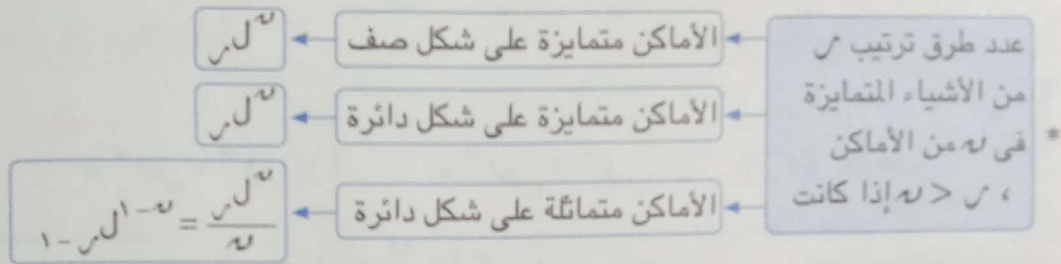 * عدد طرق ترتيب س
من الأشياء المتمايزة
فى ن من الأماكن
، س < ن إذا كانت
الأماكن متمايزة على شكل صف
ⁿلس
الأماكن متمايزة على شكل دائرة
ⁿلس
الأماكن متماثلة على شكل دائرة
ⁿلس / ن = ⁿ⁻¹لس-١